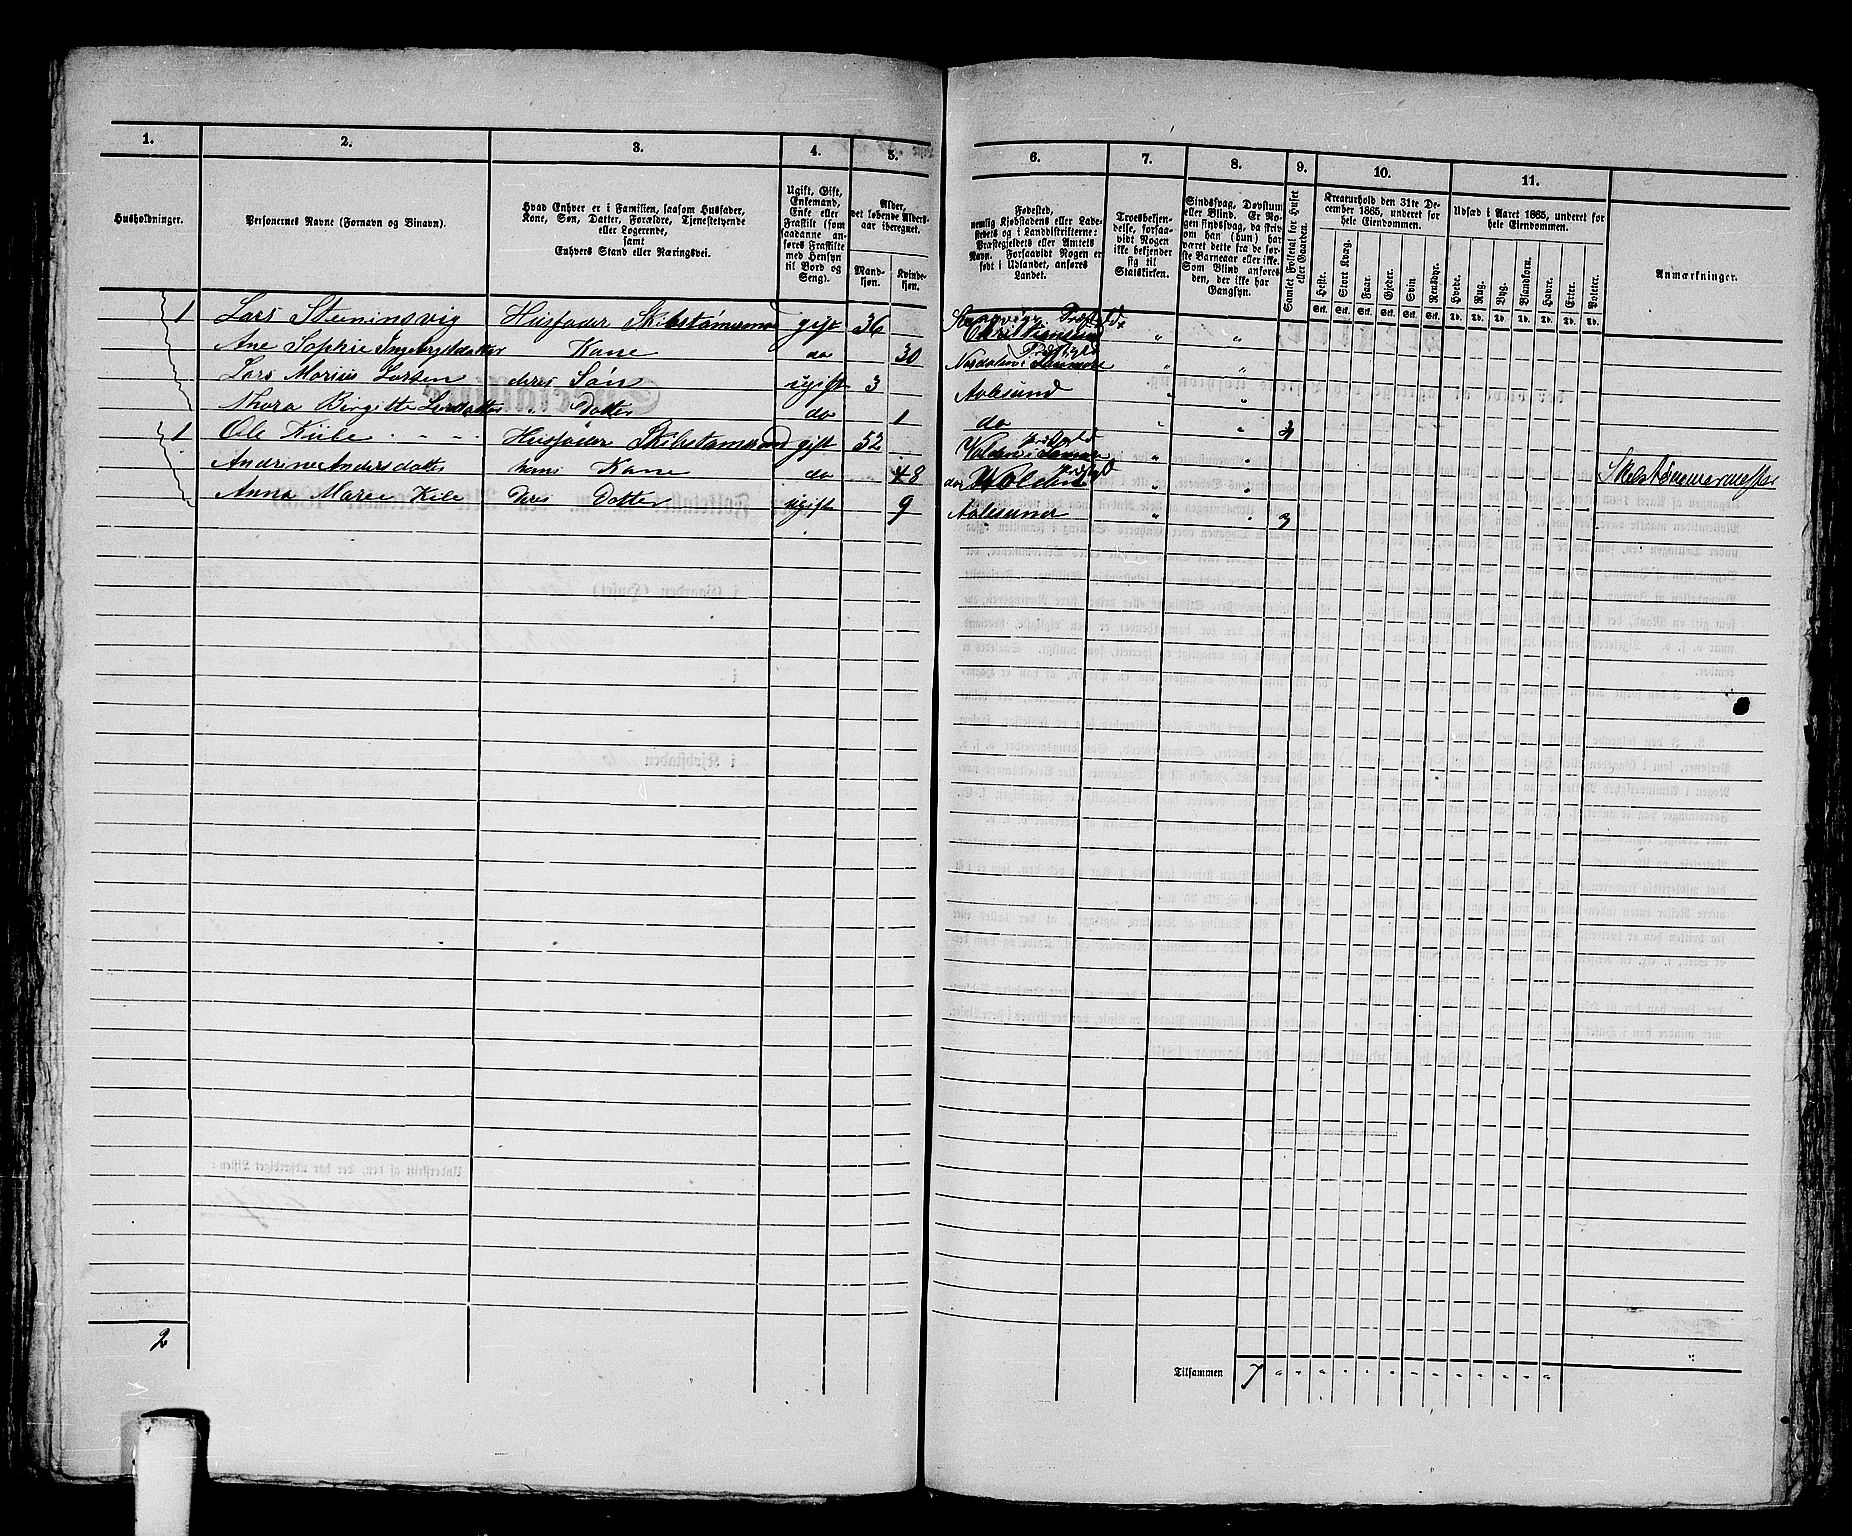 1. 2. 3. 4. 5. 6. 7. 8. 9. 10. 11.
Husholdninger.
Personernes Navne (Fornavn og Binavn).
Hvad Enhver er i Familien, saasom Husfader,
Kone, Søn, Datter, Forældre, Tjenestetyende
eller Logerende,
samt
Enhvers Stand eller Næringsvei.
Ugift, Gift,
Enkemand,
Enke eller
Fraskilt (som
saadanne an-
føres Fraskilte
med Hensyn
til Bord og
Seng).
Alder,
det løbende Alders-
aar iberegnet.
Mand-
kjøn.
Kvinde-
kjøn.
Fødested,
nemlig Kjøbstadens eller Lade-
stedets og i Landdistrikterne:
Præstegjeldets eller Amtets
Navn. Forsaavidt Nogen er
født i Udlandet, anføres
Landet.
Troesbekjen-
delse, forsaa-
vidt Nogen
ikke bekjender
sig til
Statskirken.
Sindssvag, Døvstum
eller Blind. Er No-
gen sindssvag, da skriv
om han (hun) har
været dette fra de før-
ste Barneaar eller ikke.
Som Blind anføres
den, der ikke har
Gangsyn.
Samlet Folketal for Huset
eller Gaarden.
Kreaturhold den 31te De-
cember 1865, underet for
hele Eiendommen.
Heste. Stort Kvæg. Faar. Gjeder. Svin. Rensdyr.
Udsæd i Aaret 1865, underet for
hele Eiendommen.
Hvede. Rug. Byg. Blandkorn. Havre. Erter. Poteter.
Anmærkninger.
Stk. Stk. Stk. Stk. Stk. Stk. Td. Td. Td. Td. Td. Td. Td.
1 Lars Steninsvig Husfader Skibstømmermand gift 36
Ane Sophie Ingebrigtdatter Kone do 30
Lars Marius Larsen deres Søn ugift 3 Aalesund
Thora Birgitte Larsdatter " Datter do 1 do 4
1 Ole Kiile Husfader Skibstømmermand gift 52
Andrine Andersdatter hans Kone do 48
Anna Maree Kile deres Datter ugift 9 Aalesund 3
2
Tilsammen 7